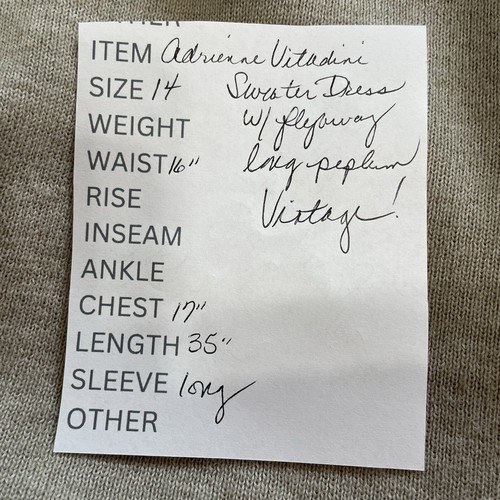 ITEM Adrienne Vitadini
SIZE 14 Sweater Dress
WEIGHT w/ flyaway
WAIST 16" long peplum
RISE Vintage!
INSEAM
ANKLE
CHEST 17"
LENGTH 35"
SLEEVE long
OTHER